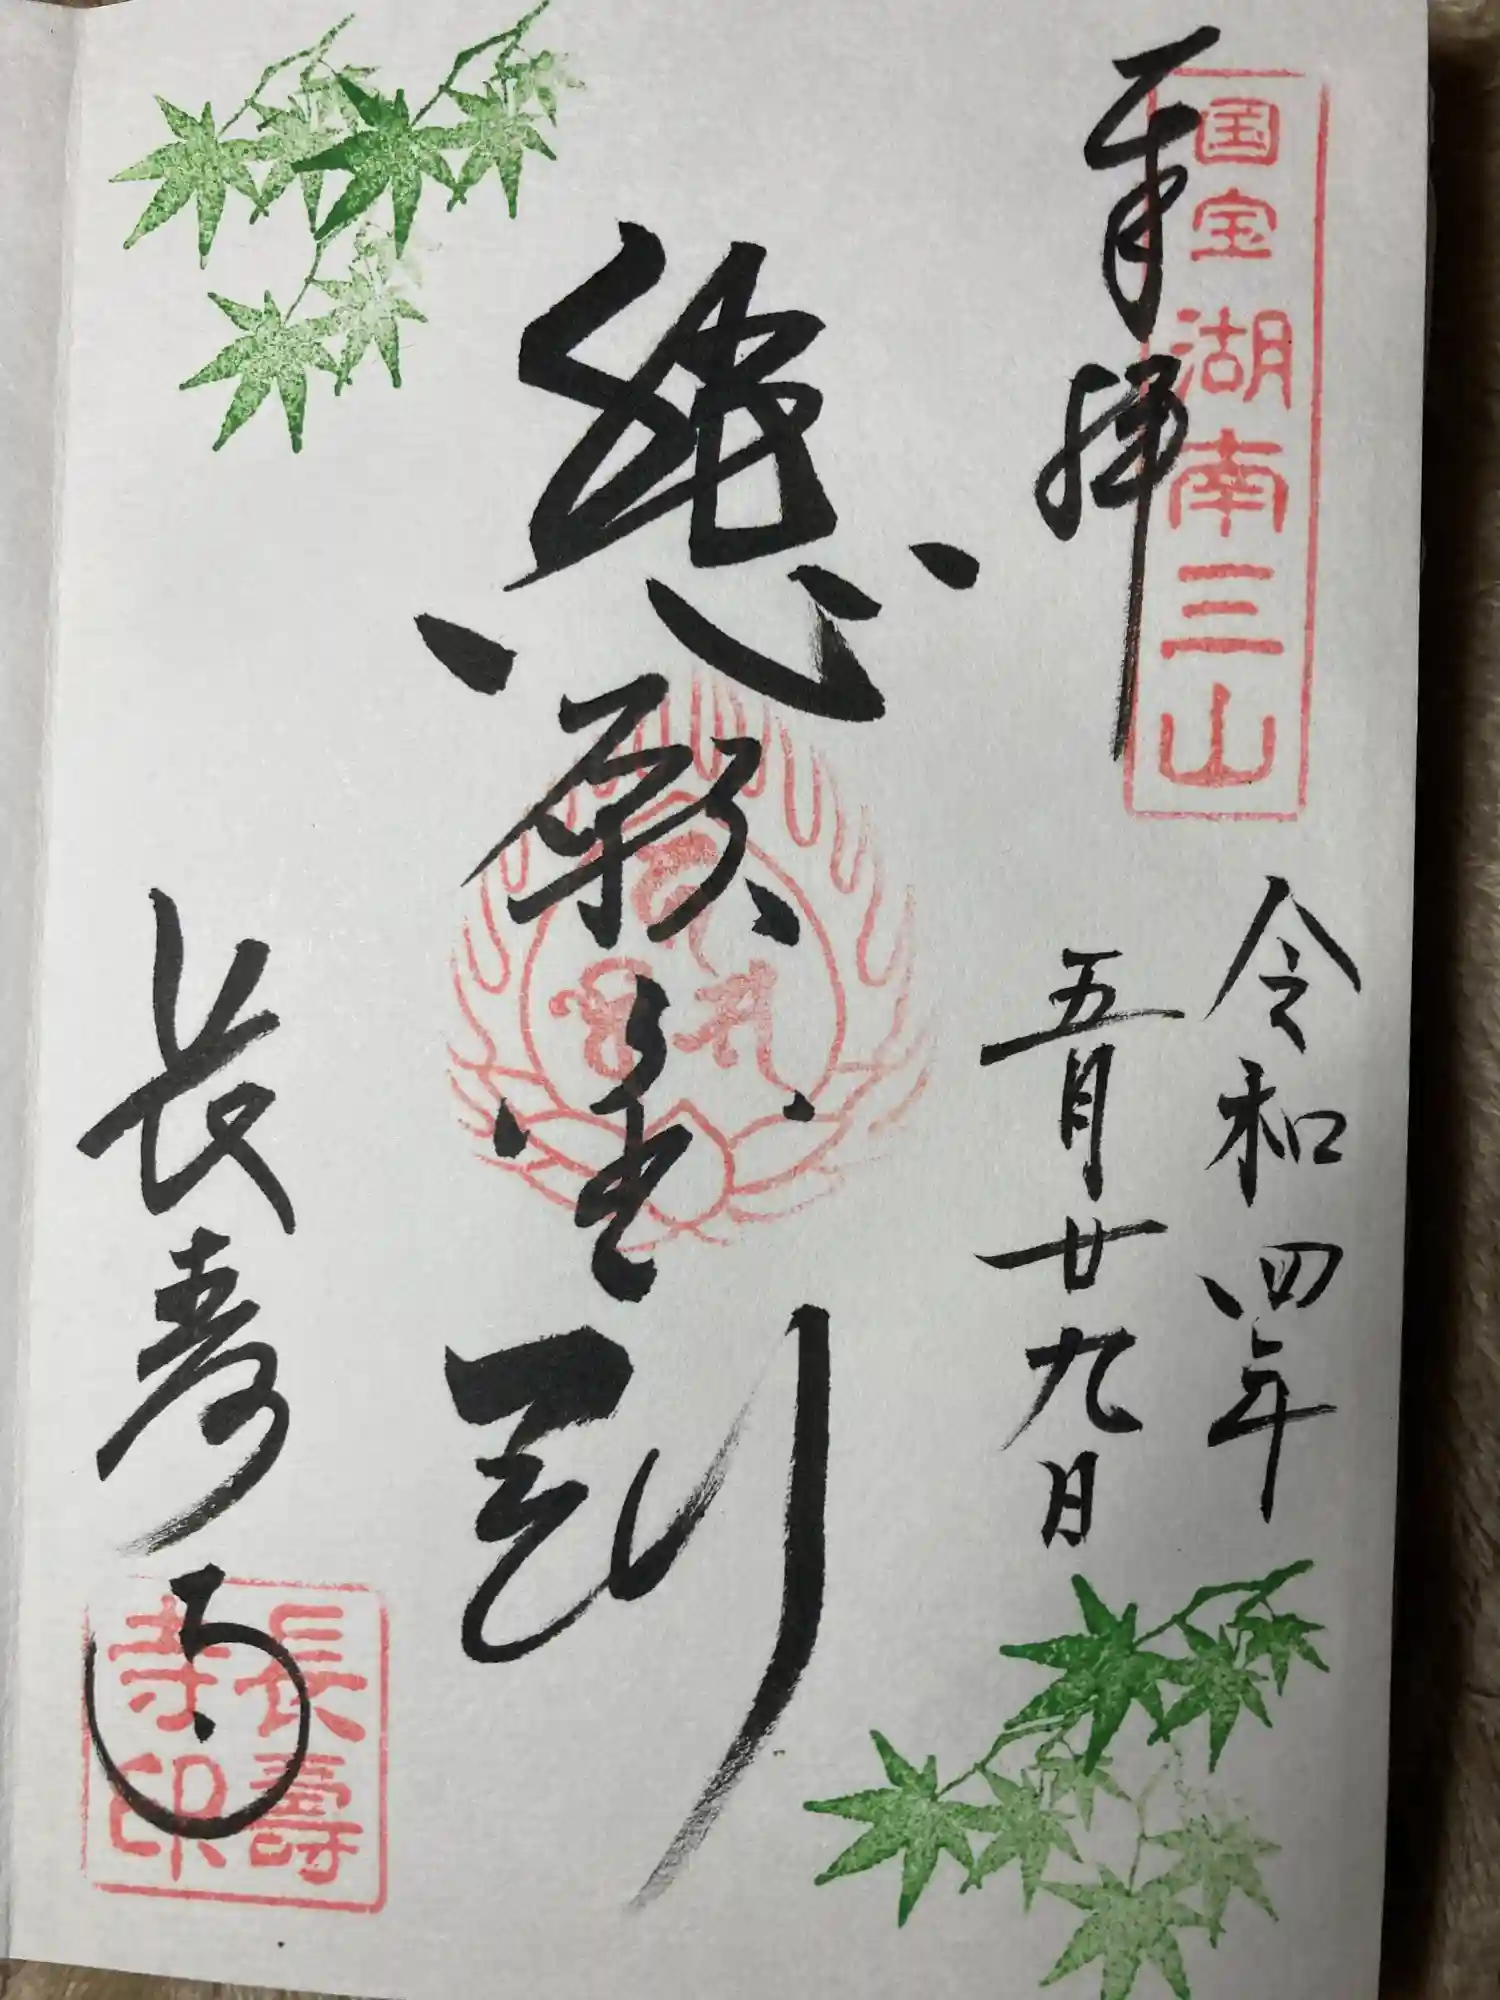 国宝 湖南三山
奉拝
令和四年
五月廿九日
悲願金剛
長寿寺
長壽寺印